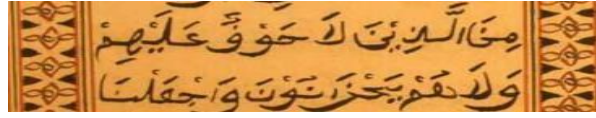 مِنَ الَّذِيْنَ لَا خَوْفٌ عَلَيْهِمْ
وَلَا هُمْ يَحْزَانُوْنَ وَاجْعَلْنَا